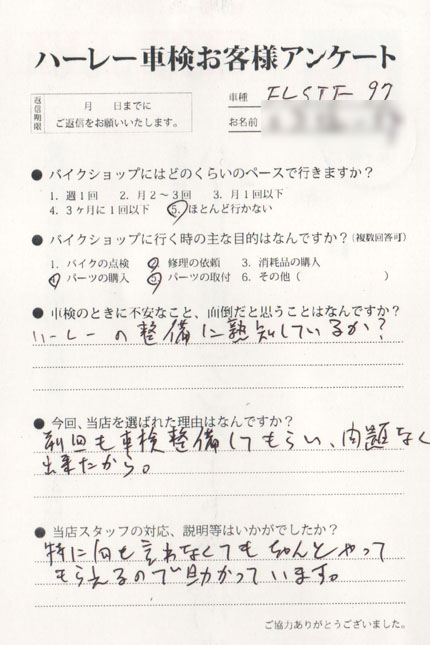 ハーレー車検お客様アンケート
返信期限
月　　日までに
ご返信をお願いいたします。
車種 FLSTF 97
お名前
● バイクショップにはどのくらいのペースで行きますか？
1. 週1回　2. 月2～3回　3. 月1回以下
4. 3ヶ月に1回以下　5. ほとんど行かない
● バイクショップに行く時の主な目的はなんですか？(複数回答可)
1. バイクの点検　2. 修理の依頼　3. 消耗品の購入
4. パーツの購入　5. パーツの取付　6. その他（　　　　　　　）
● 車検のときに不安なこと、面倒だと思うことはなんですか？
ハーレーの整備に熟知しているか？
● 今回、当店を選ばれた理由はなんですか？
前回も車検整備してもらい、問題なく
出来たから。
● 当店スタッフの対応、説明等はいかがでしたか？
特に何も言わなくてもちゃんとやって
もらえるので助かっています。
ご協力ありがとうございました。